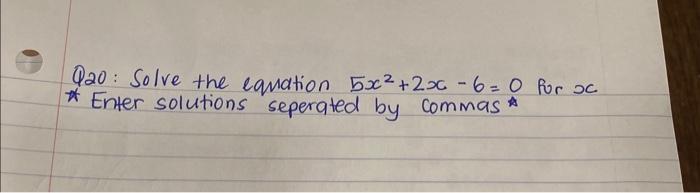 Q20: Solve the equation 5x²+2x - 6 = 0 for x
* Enter solutions seperated by commas *